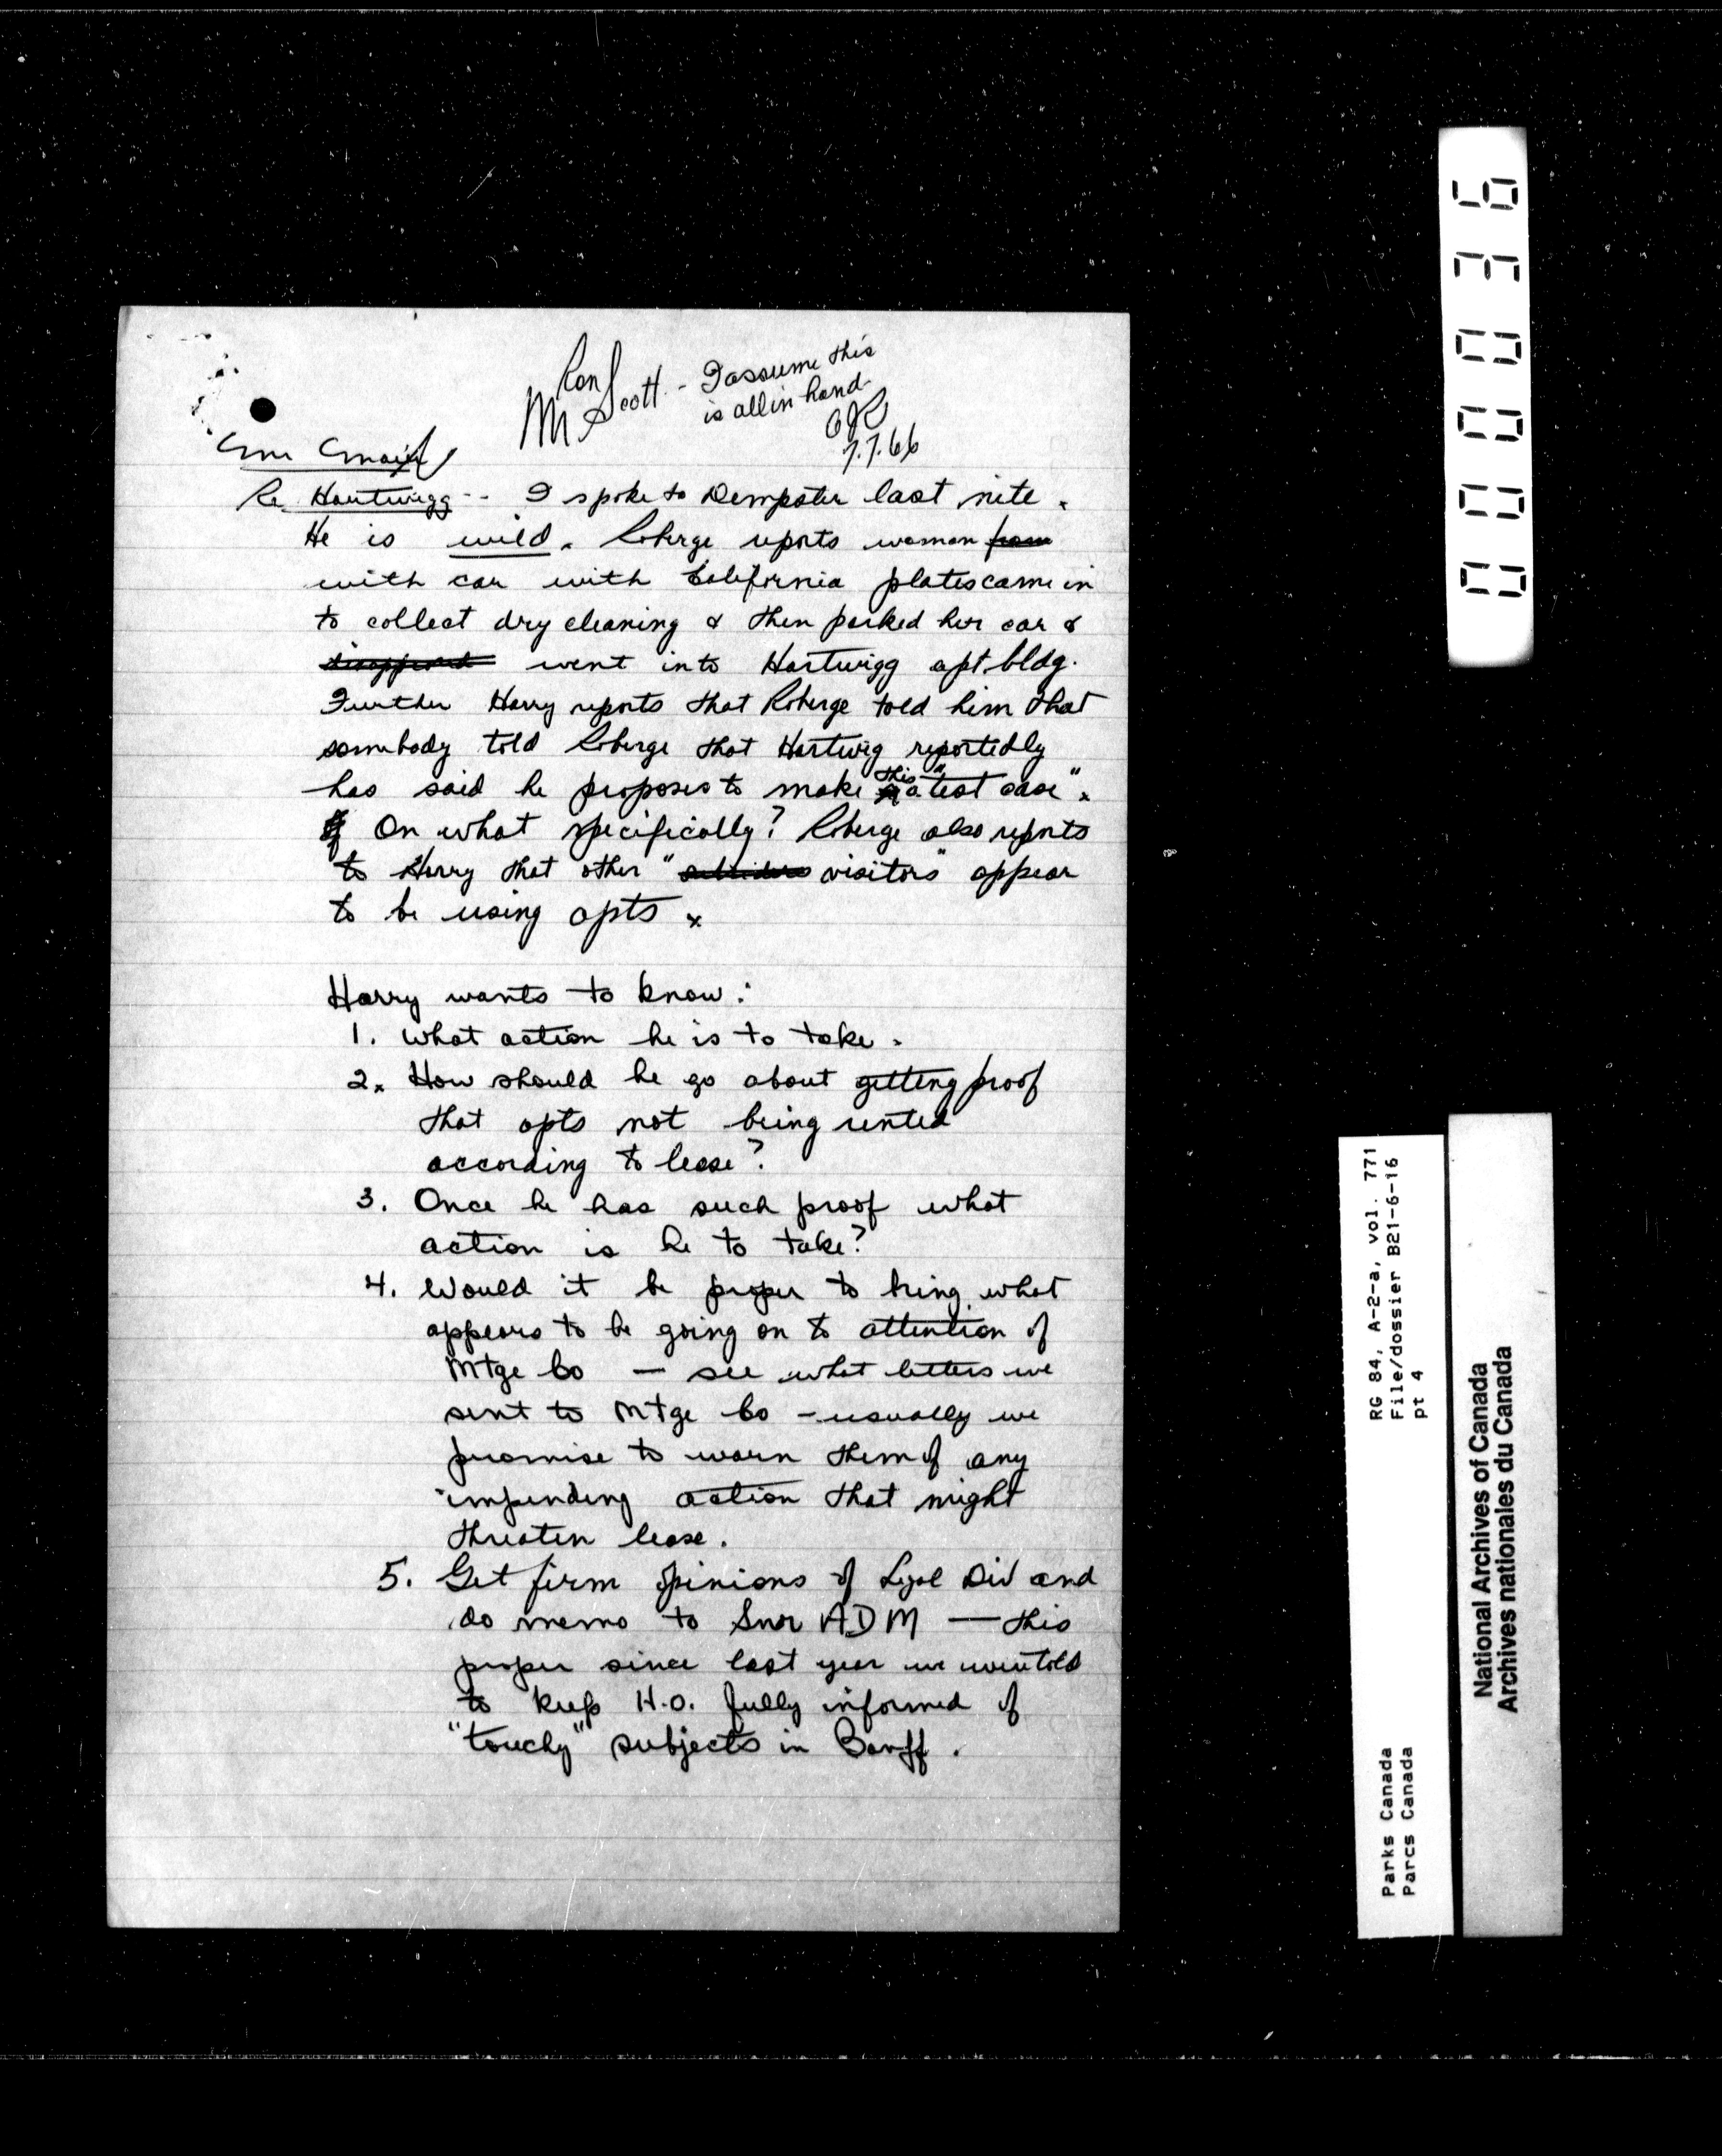 Ron
Mr Scott - I assume this
is all in hand
7.7.66
Re Hartwigg -- I spoke to Dempster last nite.
He is wild. Roberge reports woman from
with car with California plates came in
to collect dry cleaning & then parked her car &
disappeared went into Hartwigg apt. bldg.
Further Harry reports that Roberge told him that
somebody told Roberge that Hartwig reportedly
has said he proposes to make this a "test case".
On what specifically? Roberge also reports
to Harry that other "visitors" appear
to be using apts.
Harry wants to know:
1. What action he is to take.
2. How should he go about getting proof
that apts not being rented
according to lease?
3. Once he has such proof what
action is he to take?
4. Would it be proper to bring what
appears to be going on to attention of
Mtge Co — see what letters we
sent to Mtge Co - usually we
promise to warn them of any
impending action that might
threaten lease.
5. Get firm opinions of Legal Div and
do memo to Snr ADM — this
proper since last year we were told
to keep H.O. fully informed of
"touchy" subjects in Banff.
000036
RG 84, A-2-a, vol. 771
File/dossier B21-6-16
pt 4
Parks Canada
Parcs Canada
National Archives of Canada
Archives nationales du Canada